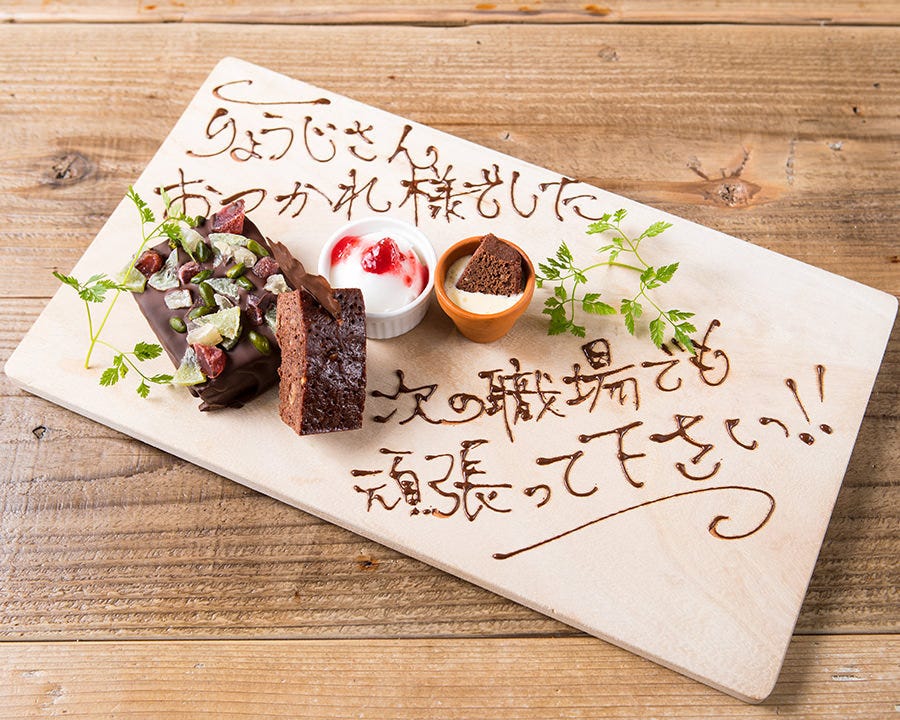 りょうじさん
おつかれ様でした
次の職場でも
頑張って下さいっ!!